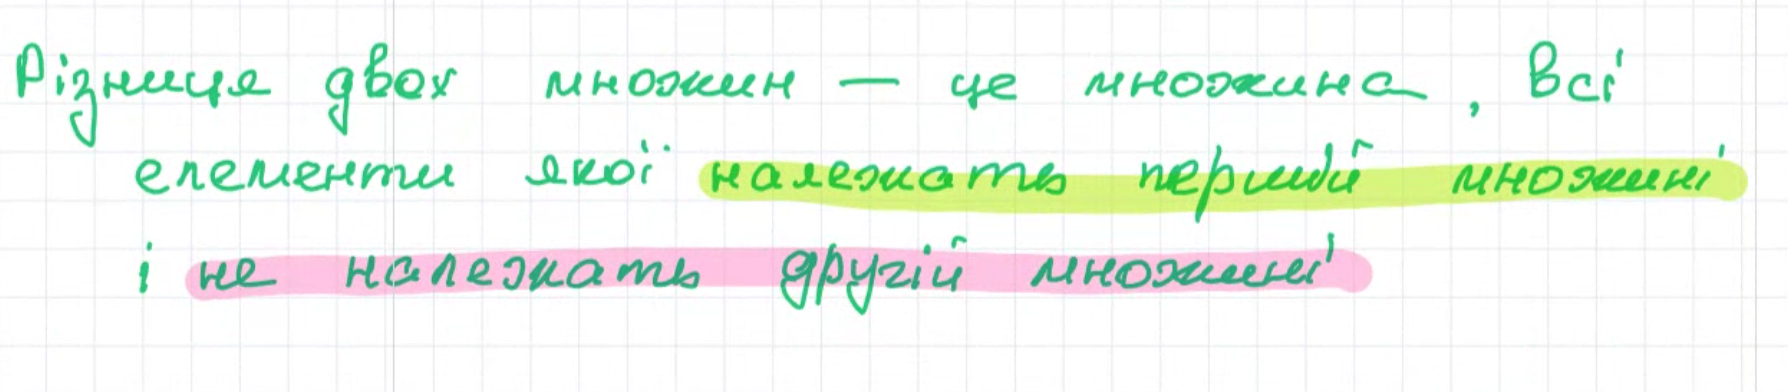 Різниця двох множин — це множина, всі
елементи якої належать першій множині
і не належать другій множині